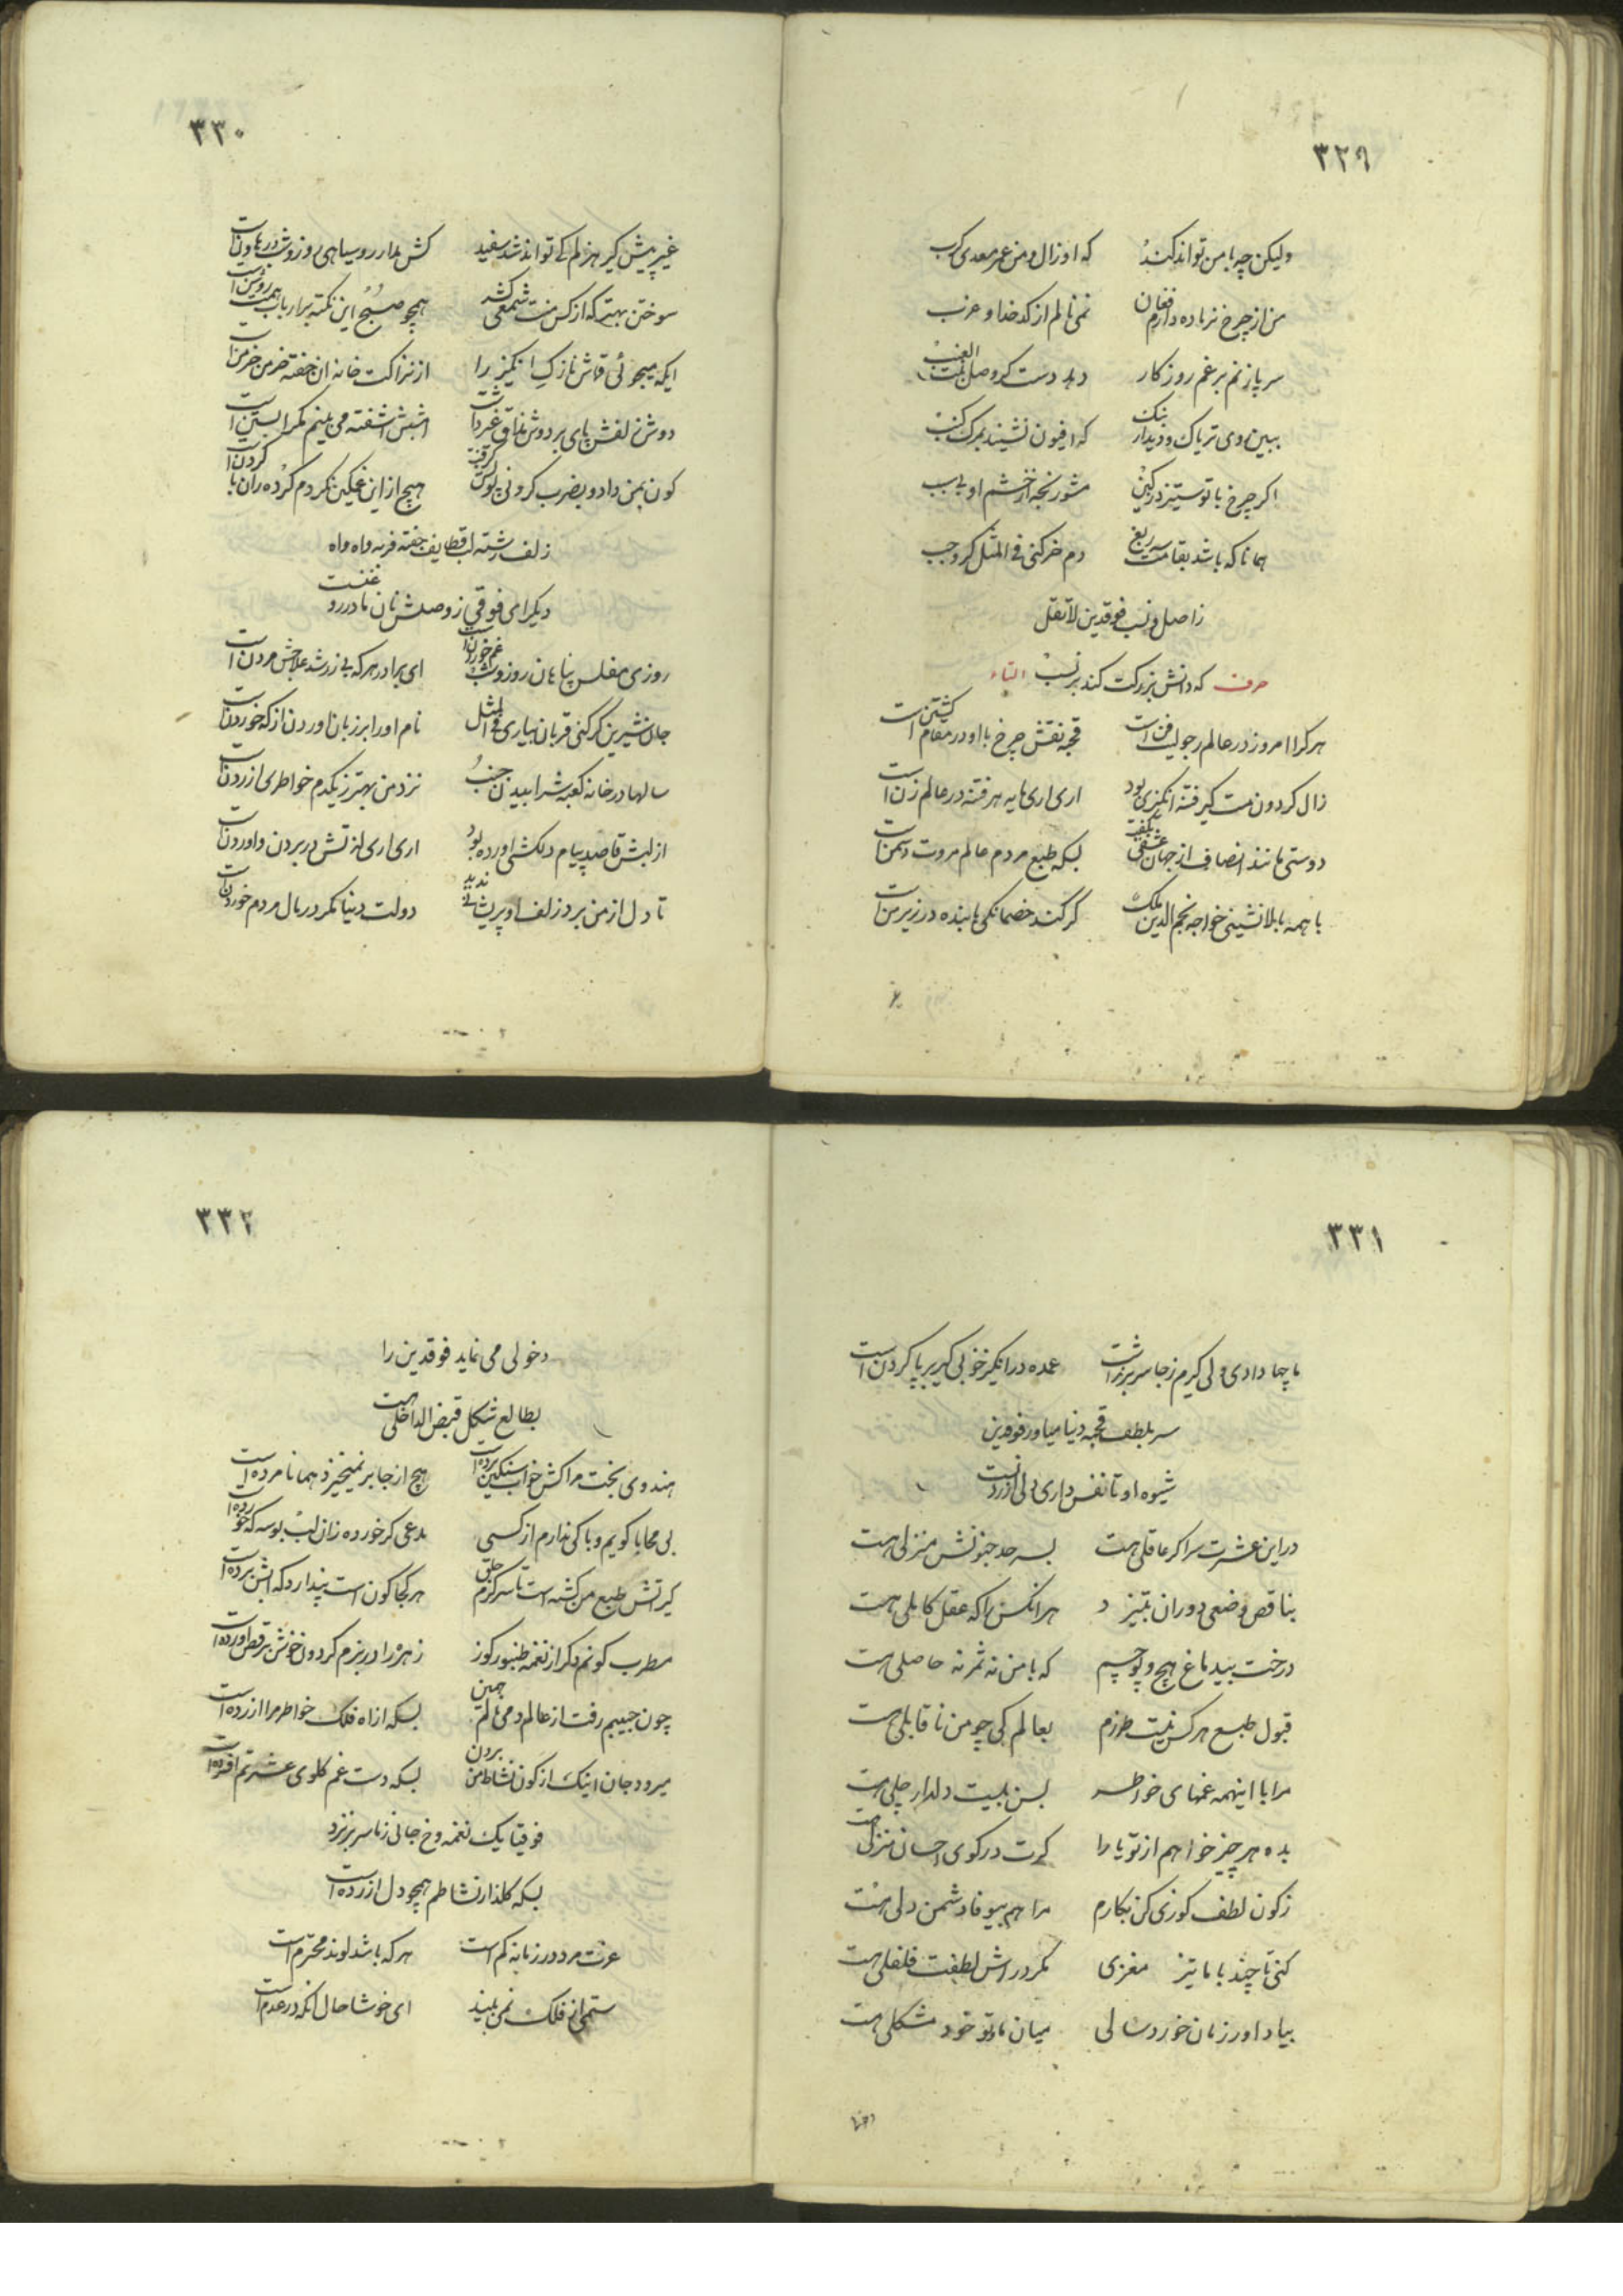 ٣٢٩
ولیکن چه با من تواند کند که او زال و من عمر معدی کرب
من از چرخ نر ماده دارم فغان نمی نالم از کدخدا و عزب
سر پا زنم بر غم روزگار دهد دست کر وصل بنت العنب
ببین روی تریاک و دیدار بنک که افیون نشیند بمرک کنب
اکر چرخ با تو ستیزد ز کین مشو رنجه از خشم او بی سبب
همانا که باشد بقامت سه ربع دم خر کنی فی المثل کر وجب
ز اصل و نسب فوقدین لاتقل
که دانش بزرکت کند بر نسب
حرف التاء
هر کرا امروز در عالم رجولیت فن است قحبه نقش چرخ با او در مقام کشتن است
زال کردون مست کیر فتنه انکیزی بود اری اری مایه هر فتنه در عالم زن است
دوستی مانند انصاف از جهان عنقا بکفت بسکه طبع مردم عالم مروت دشمن است
با همه بالانشینی خواجه نجم الدین ملک کر کند خصمانکی با بنده در زیر من است
٣٣٠
غیر پیش کیر هزلم کی تواند شد سفید کش مدار رو سیاهی روز و شب در هاون است
سوختن بهتر که از کس منت شمعی کشد همچو صبح این نکته بر ارباب همت روشن است
ایکه میجوئی قماش نازک انکیز را از نزاکت خانه ان خفته خرمن خرمن است
دوش زلفش پای بر دوش نفاق غیر داشت امشبش اشفته می بینم مکر ابستن است
کون بمن داد و بضرب کردنی پولش کرفت هیچ از این غمکین نکردم کرده ران با کردن است
زلف رشته لب قطایف جفته فربه واه واه
دیکر ای فوقی ز وصلش نان ما در روغنست
روزی مفلس پناهان روز و شب غم خوردن است ای برادر هر که بی زر شد علاجش مردن است
جان شیرین کر کنی قربان بیاری فی المثل نام او را بر زبان اوردن از که خوردن است
سالها در خانه کعبه شرابیدن جنب نزد من بهتر ز یکدم خاطری ازردن است
از لبش قاصد پیام دلکشی اورده بود اری اری لذتش در بردن و اوردن است
تا دل از من برد زلف او پریشانی ندید دولت دنیا مکر در مال مردم خوردن است
٣٣١
ما چها دادی ولی کیرم ز جا سر بر نداشت عمده در انکیز خوبی کیر بر پا کردن است
سر بلطف قحبه دنیا میاور فوقدین
شیوه او تا نفس داری دلی ازردنست
در این عشرت سرا کر عاقلی هست بسر حد جنونش منزلی هست
بناقص وضعی دوران بتیزد هر انکس را که عقل کاملی هست
درخت بید باغ هیچ و پوچیم که با من نه ثمر نه حاصلی هست
قبول طبع هر کس نیست طرزم بعالم کی چو من ناقابلی هست
مرا با اینهمه غمهای خواطر بسن بیست دلدار چلی هست
بده هر چیز خواهم از تو یارا کرت در کوی احسان منزلی هست
ز کون لطف کوزی کن بکارم مرا هم بیوفا دشمن دلی هست
کنی تا چند با ما تیز مغزی مکر در اش لطفت فلفلی هست
بیاد اور زمان خوردسالی میان ما و تو خود مشکلی هست
٣٣٢
دخولی می نماید فوقدین را
بطالع شکل قبض الداخلی هست
هندوی بخت مرا کش خواب سنکین برده است هیچ از جا بر نمیخیزد همانا مرده است
بی محابا کویم و باکی ندارم از کسی مدعی کر خورده زان لب بوسه که خورده است
کیر تش طبع من کشته است تا سر کرم جلق هر کجا کون است پندارد که ابش برده است
مطرب کونم دکر از نغمه طنبور کوز زهره را در بزم کردون خوش برقص اورده است
چون جبینم رفت از عالم دمی نالم چنین بسکه از اه فلک خواطر مرا ازرده است
میرود جان اینک از کون نشاط من برون بسکه دست غم کلوی عشرتم افشرده است
فوقیا یک نغمه وخ جانی ز ما سر بر نزد
بسکه کلذار نشاطم همچو دل ازرده است
عزت مرد در زمانه کم است هر که باشد لوند محترم است
ستمی از فلک نمی بیند ای خوشا حال انکه در عدم است